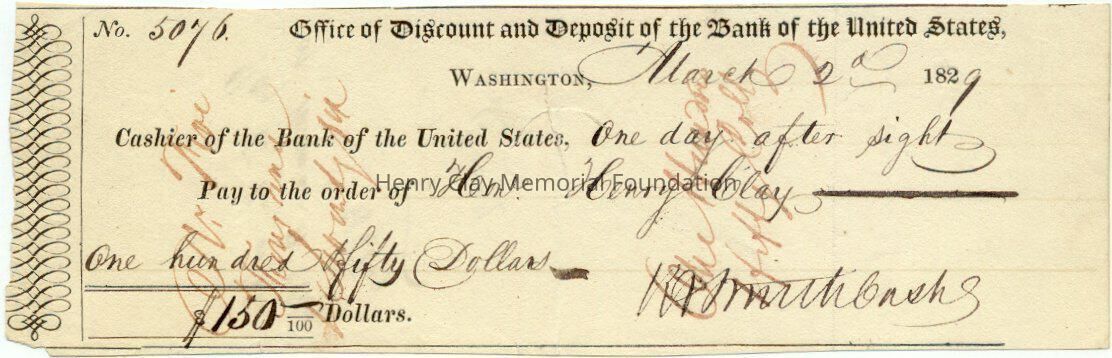 No. 5076. Office of Discount and Deposit of the Bank of the United States,
Washington, March 2d 1829
Cashier of the Bank of the United States, One day after sight
Pay to the order of Hon. Henry Clay
Henry Clay Memorial Foundation
One hundred & fifty Dollars
$150 —/100 Dollars.
Smith Cashr